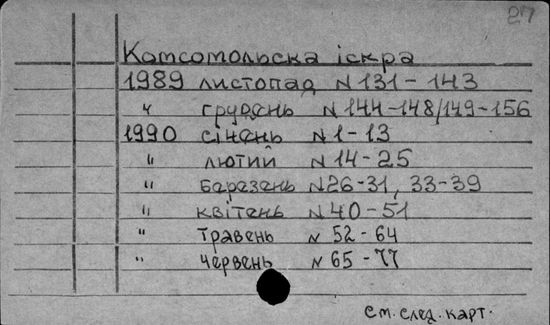 27
Комсомольска іскра
1989 листопад N 131-143
" грудень N 144-148/149-156
1990 січень N 1-13
" лютий N 14-25
" березень N 26-31, 33-39
" квітень N 40-51
" травень N 52-64
" червень N 65-77
См. след. карт.